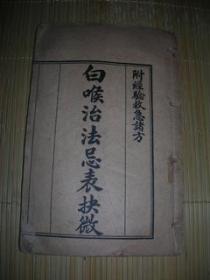 附經驗救急諸方
白喉治法忌表抉微